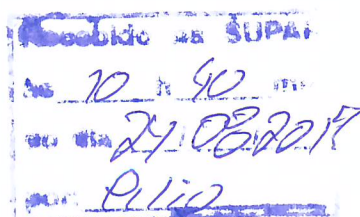 Recebido na SUPAR
às 10 h 40 m
no dia 27/08/2019
por: